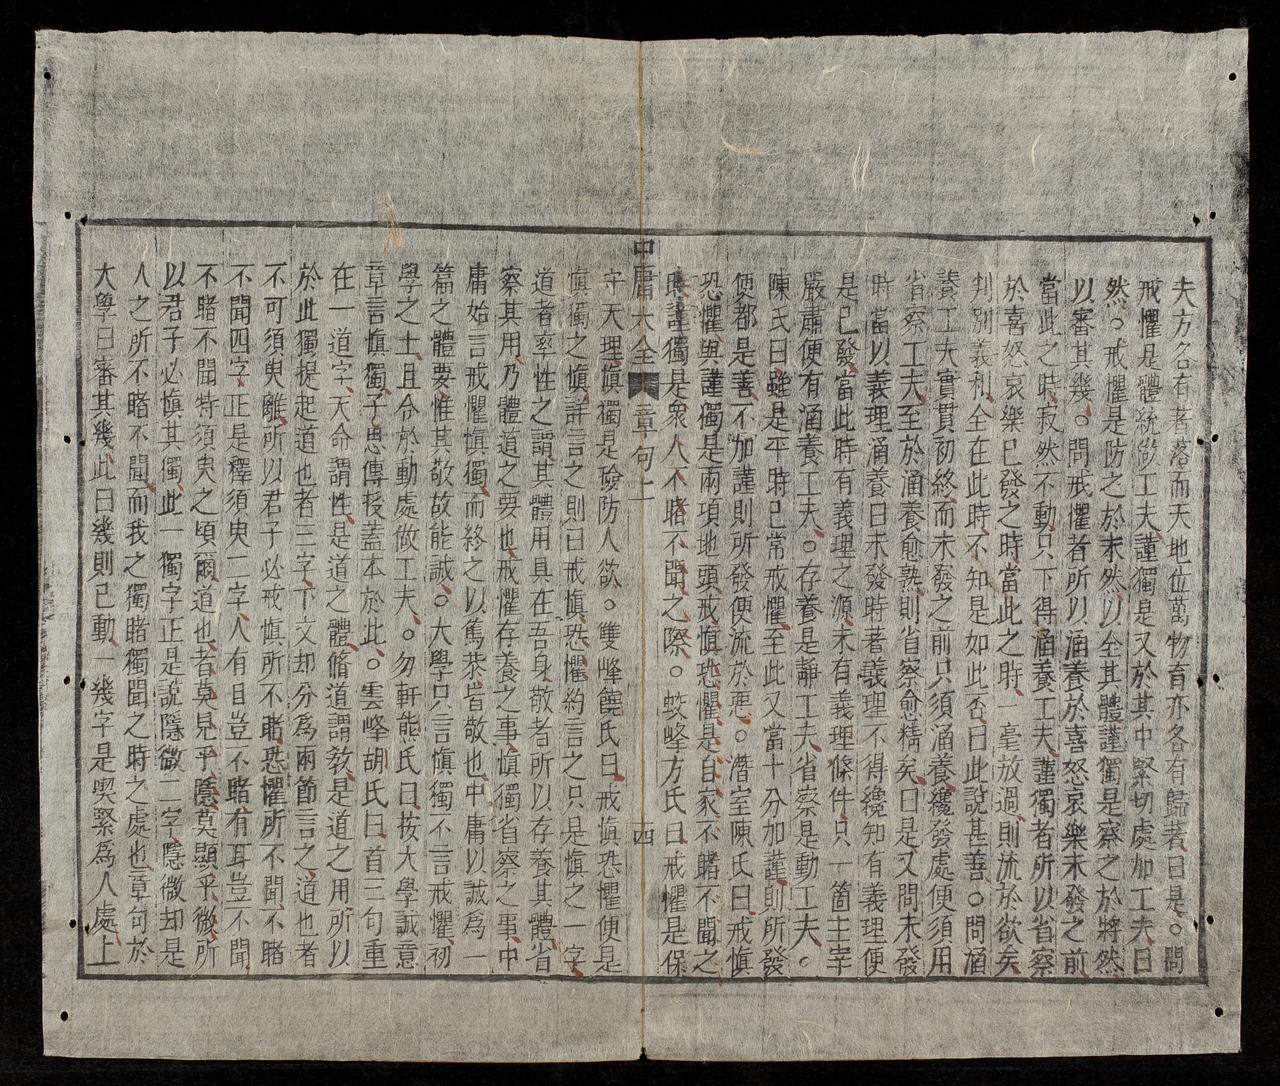 夫方各有著落而天地位萬物育亦各有歸著曰是○問
戒懼是體統做工夫謹獨是又於其中緊切處加工夫曰
然○戒懼是防之於未然以全其體謹獨是察之於將然
以審其幾○問戒懼者所以涵養於喜怒哀樂未發之前
當此之時寂然不動只下得涵養工夫謹獨者所以省察
於喜怒哀樂已發之時當此之時一毫放過則流於欲矣
判別義利全在此時不知是如此否曰此說甚善○問涵
養工夫實貫初終而未發之前只須涵養纔發處便須用
省察工夫至於涵養愈熟則省察愈精矣曰是又問未發
時當以義理涵養曰未發時著義理不得纔知有義理便
是已發當此時有義理之源未有義理條件只一箇主宰
嚴肅便有涵養工夫○存養是靜工夫省察是動工夫○
陳氏曰雖是平時已常戒懼至此又當十分加謹則所發
便都是善不加謹則所發便流於惡○潛室陳氏曰戒愼
恐懼與謹獨是兩項地頭戒愼恐懼是自家不睹不聞之
時謹獨是衆人不睹不聞之際○蛟峰方氏曰戒懼是保
中庸大全 章句二 四
守天理愼獨是險防人欲○雙峰饒氏曰戒愼恐懼便是
愼獨之愼詳言之則曰戒愼恐懼約言之只是愼之一字
道者率性之謂其體用具在吾身敬者所以存養其體省
察其用乃體道之要也戒懼存養之事愼獨省察之事中
庸始言戒懼愼獨而終之以篤恭皆敬也中庸以誠爲一
篇之體要惟其敬故能誠○大學只言愼獨不言戒懼初
學之士且令於動處做工夫○勿軒熊氏曰按大學誠意
章言愼獨子思傳授蓋本於此○雲峰胡氏曰首三句重
在一道字天命謂性是道之體脩道謂敎是道之用所以
於此獨提起道也者三字下文却分爲兩節言之道也者
不可須臾離所以君子必戒愼所不睹恐懼所不聞不睹
不聞四字正是釋須臾二字人有目豈不睹有耳豈不聞
不睹不聞特須臾之頃爾道也者莫見乎隱莫顯乎微所
以君子必愼其獨此一獨字正是說隱微二字隱微却是
人之所不睹不聞而我之獨睹獨聞之時之處也章句於
大學曰審其幾此曰幾則已動一幾字是喫緊爲人處上